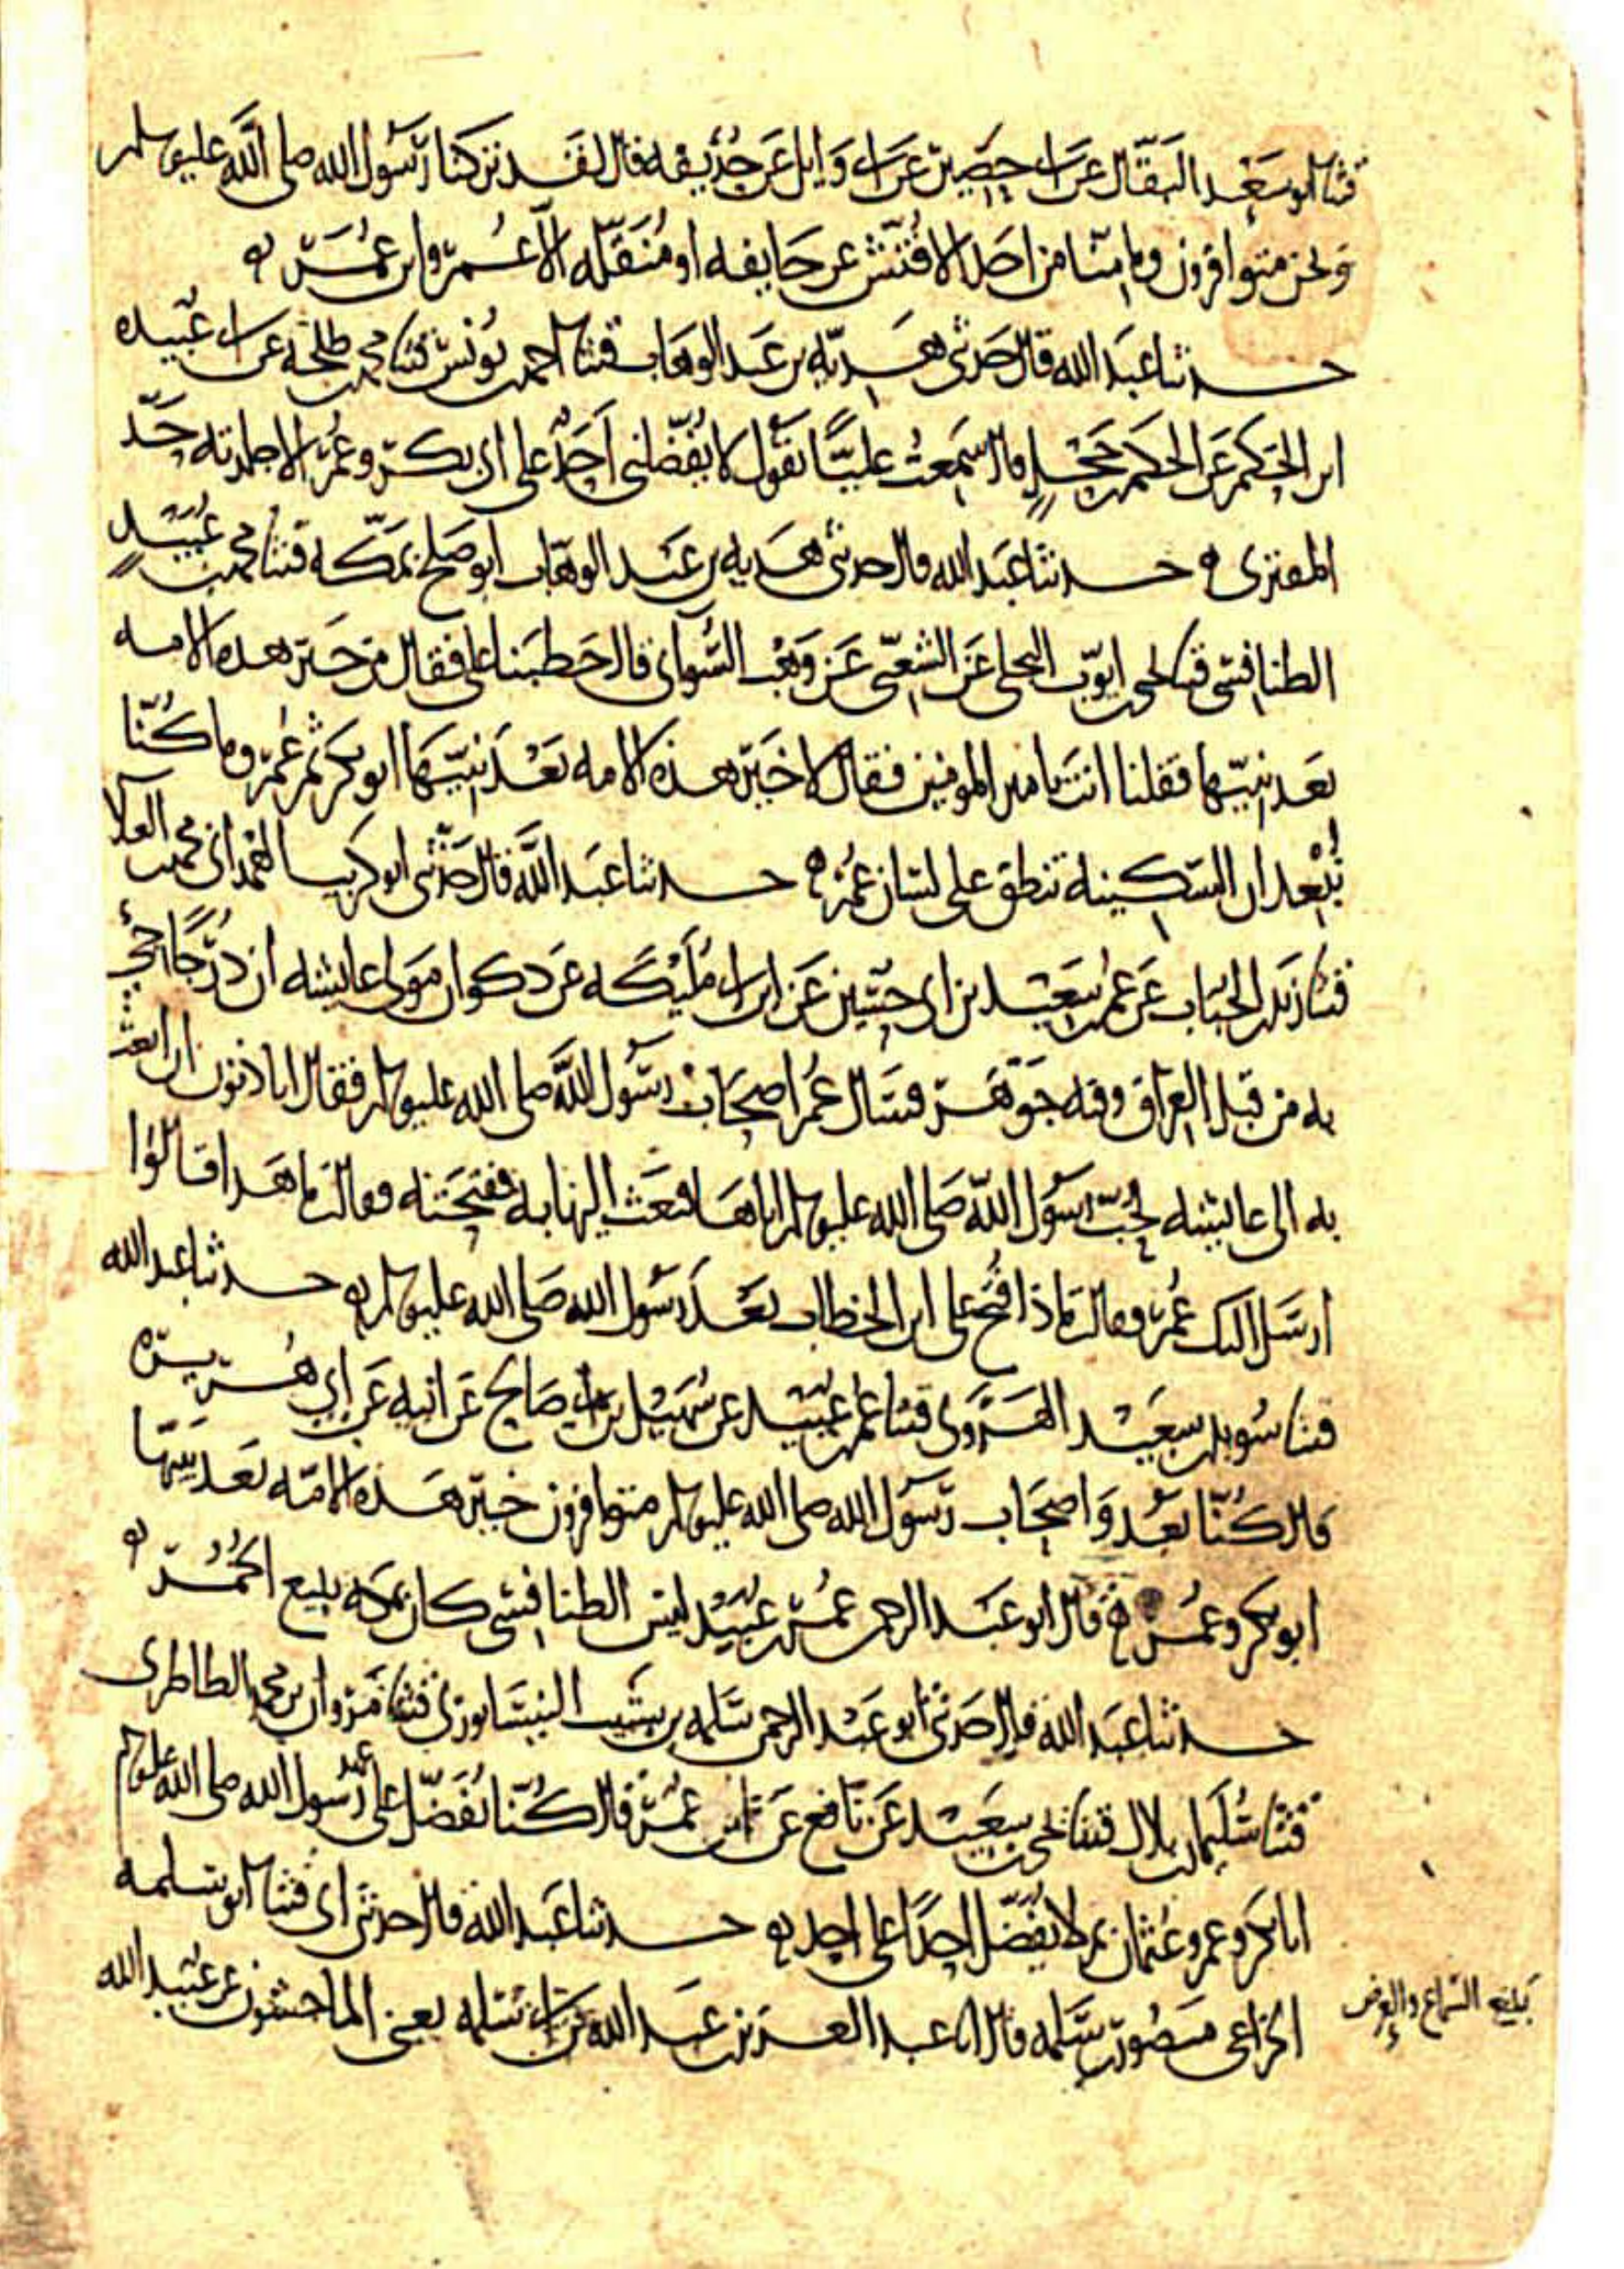 قثنا ابو سعيد البقال عن ابي حصين عن ابي وايل عن حذيفه قال لقد تركنا رسول الله صلى الله عليه وسلم
ونحن متوافرون وما منا من احد الا فتش عن جايفه او منقله الا عمر وابن عمر
حدثنا عبد الله قال حدثني هديه بن عبد الوهاب قثنا احمد بن يونس قثنا محمد بن طلحه عن ابي عبيده
ابن الحكم عن الحكم بن جحل قال سمعت عليا يقول لا يفضلني احد على ابي بكر وعمر الا جلدته حد
المفتري حدثنا عبد الله قال حدثني هديه بن عبد الوهاب ابو صلح بمكه قثنا محمد بن عبيد
الطنافسي قثنا يحيى بن ايوب البجلي عن الشعبي عن وهب السواي قال خطبنا علي فقال من خير هذه الامه
بعد نبيها فقلنا انت يا مير المومنين فقال لا خير هذه الامه بعد نبيها ابو بكر ثم عمر وما كنا
نبعد ان السكينه تنطق على لسان عمر حدثنا عبد الله قال حدثني ابو كريب الهمداني محمد بن العلا
قثنا زيد بن الحباب عن عمر بن سعيد بن ابي حسين عن ابن ابي مليكه عن ذكوان مولى عايشه ان درجا جي
به من قبل العراق وفيه جوهر فسال عمر اصحاب رسول الله صلى الله عليه وسلم فقال اتاذنون ان ابعث
به الى عايشه لحب رسول الله صلى الله عليه وسلم اياها فبعث اليها به ففتحته وقالت ما هذا قالوا
ارسل اليك عمر وقالت ماذا فتح على ابن الخطاب بعد رسول الله صلى الله عليه وسلم حدثنا عبد الله
قثنا سويد بن سعيد الهروي قثنا عمر بن عبيد عن سهيل بن ابي صالح عن ابيه عن ابي هريره
قال كنا نعد واصحاب رسول الله صلى الله عليه وسلم متوافرون خير هذه الامه بعد نبيها
ابو بكر وعمر قال ابو عبد الرحمن عمر بن عبيد ليس الطنافسي كان بمكه يبيع الخمر
حدثنا عبد الله قال حدثني ابو عبد الرحمن سلمه بن شبيب النيسابوري قثنا مروان بن محمد الطاطري
قثنا سليمان بن بلال قثنا يحيى بن سعيد عن نافع عن ابن عمر قال كنا نفضل على عهد رسول الله صلى الله عليه وسلم
ابا بكر وعمر وعثمان ثم لا نفضل احدا على احد حدثنا عبد الله قال حدثني ابي قثنا ابو سلمه
الخزاعي منصور بن سلمه قال انا عبد العزيز بن عبد الله بن ابي سلمه يعني الماجشون عن عبيد الله
بلغ السماع والعرض